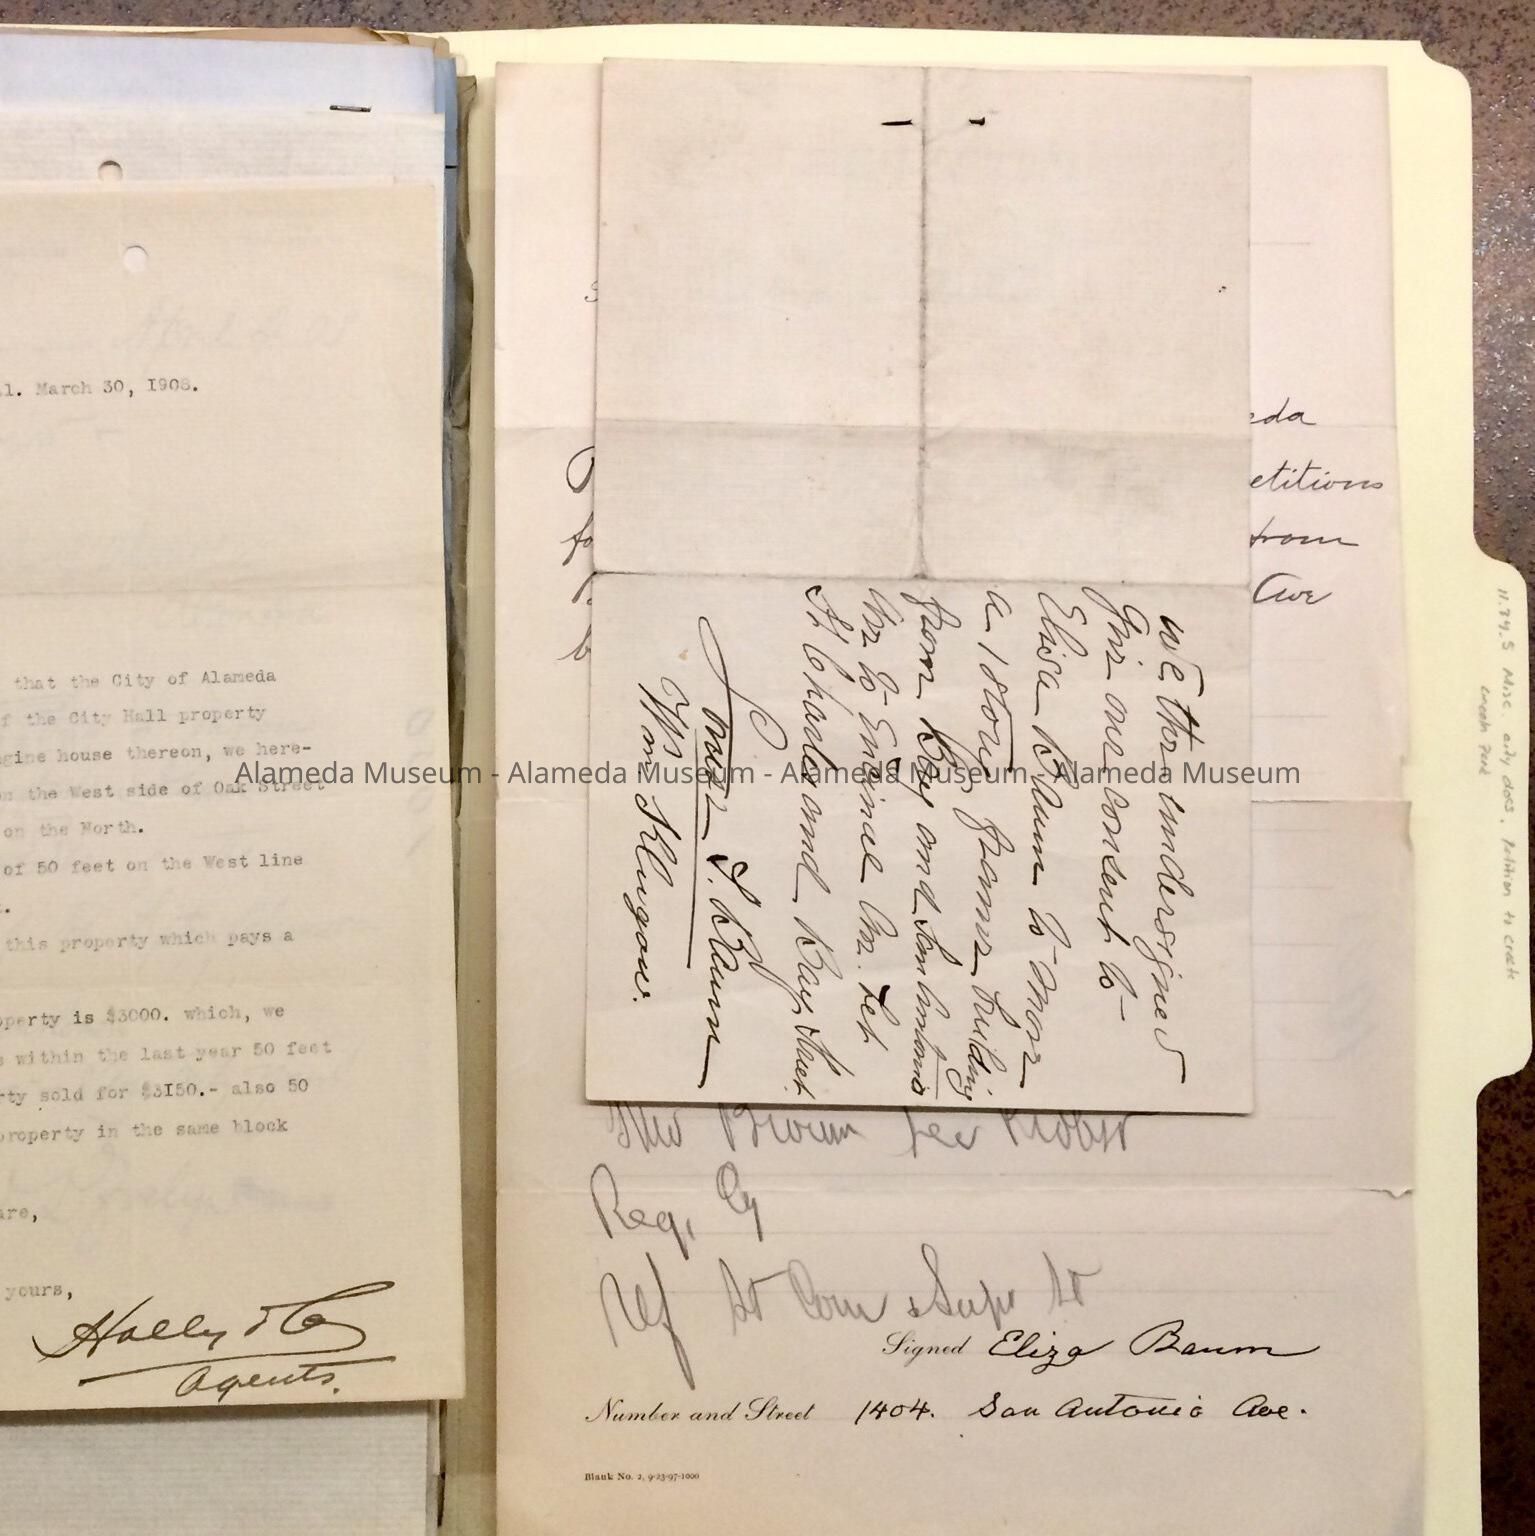 March 30, 1908.
that the City of Alameda
f the City Hall property
gine house thereon, we here-
on the West side of Oak Street
on the North.
of 50 feet on the West line
this property which pays a
operty is $3000. which, we
s within the last year 50 feet
rty sold for $3150.- also 50
property in the same block
are,
yours,
Holly & Co
Agents.
eda
etitions
from
Ave
We the undersigned
give our consent to
Elisa Baum to move
a 1 story frame building
from Bay and San Antonio
Av. to Encinal Av. bet
St Charles and Bay Street
S. Baum
Wm Klugow.
Req. Cy
Ref St Com & Supt St
Signed Eliza Baum
Number and Street 1404. San Antonio Ave.
Blank No. 2, 9-23-97-1000
11.79.5 Misc. city docs. Petition to create
Park
Alameda Museum - Alameda Museum - Alameda Museum - Alameda Museum